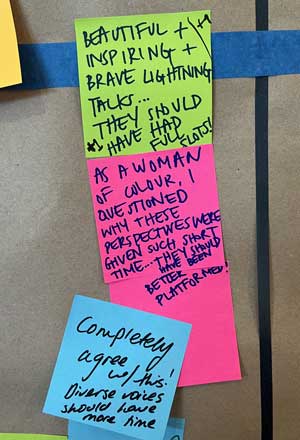 BEAUTIFUL +
INSPIRING +
BRAVE LIGHTNING
TALKS...
THEY SHOULD
HAVE HAD
FULL SLOTS!
AS A WOMAN
OF COLOUR, I
QUESTIONED
WHY THESE
PERSPECTIVES WERE
GIVEN SUCH SHORT
TIME... THEY SHOULD
HAVE BEEN
BETTER
PLATFORMED!
Completely
agree
w/ this!
Diverse voices
should have
more time